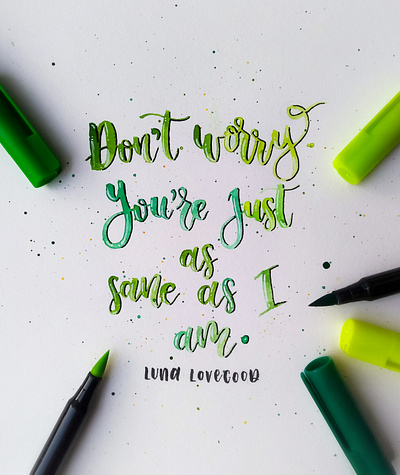 Don't worry
You're Just
as
sane as I
am.
LUNA LOVEGOOD